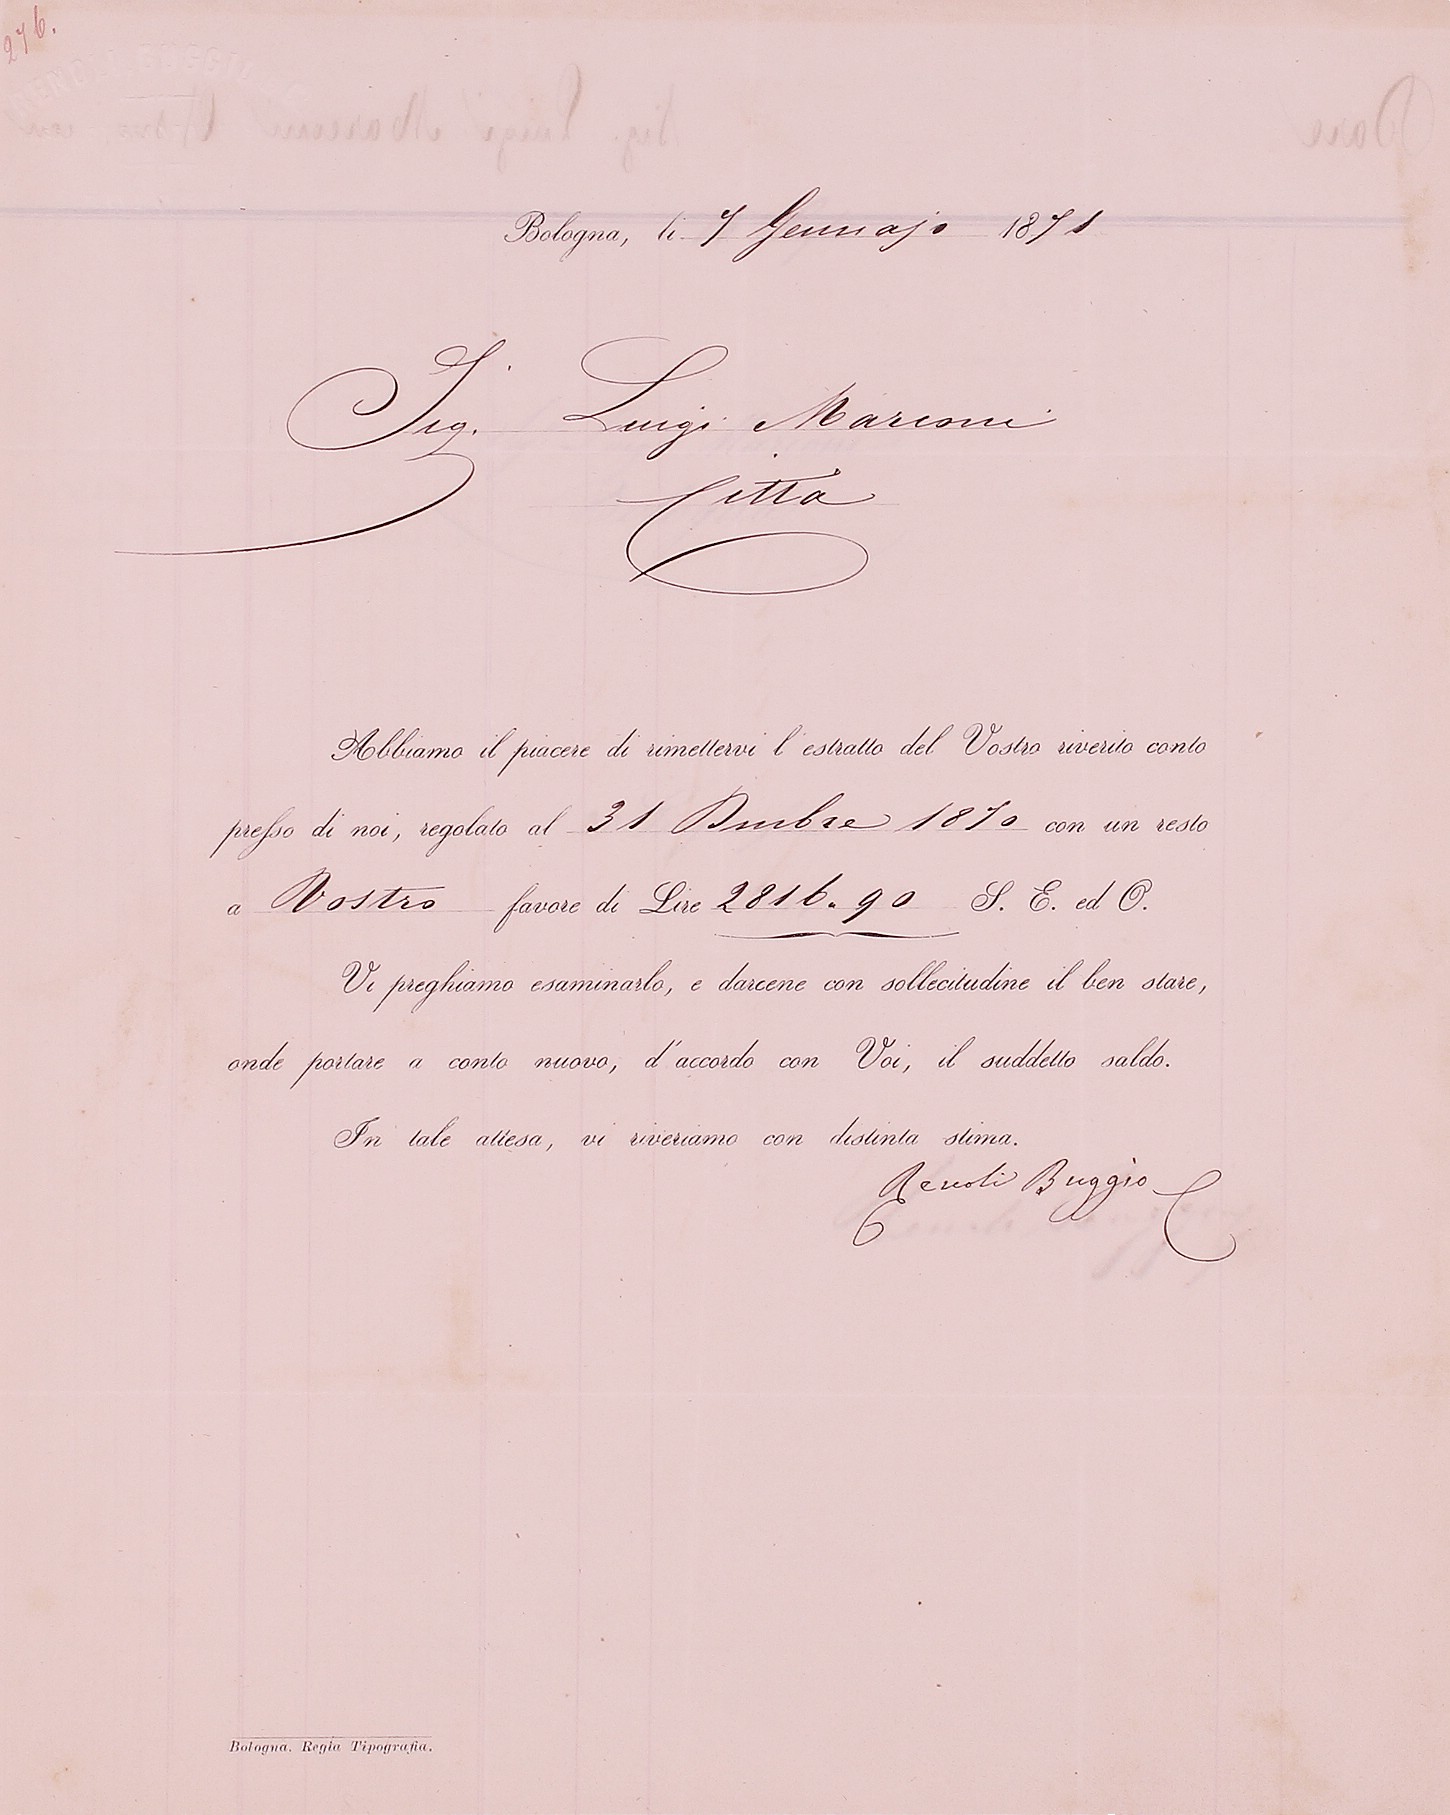 276.
Bologna, li 7 Gennajo 1871
Sig. Luigi Marconi
Città
Abbiamo il piacere di rimettervi l'estratto del Vostro riverito conto
presso di noi, regolato al 31 Dmbre 1870 con un resto
a Vostro favore di Lire 2816.90 S. E. ed O.
Vi preghiamo esaminarlo, e darcene con sollecitudine il ben stare,
onde portare a conto nuovo, d'accordo con Voi, il suddetto saldo.
In tale attesa, vi riveriamo con distinta stima.
Renoli Buggio C
Bologna. Regia Tipografia.